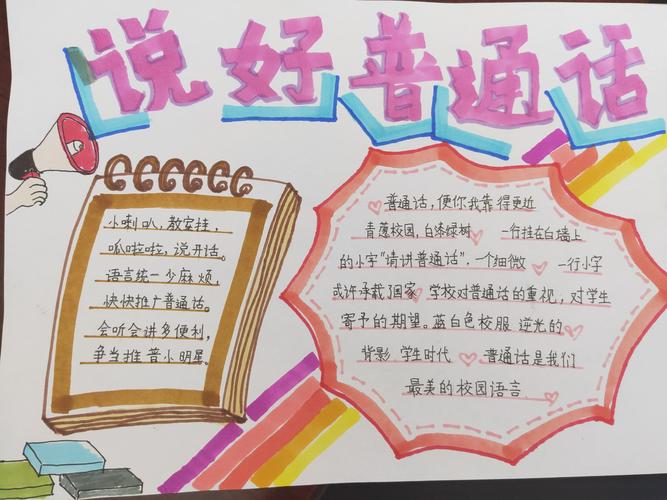 说好普通话
小喇叭,教室挂,
呱啦啦,说开话。
语言统一少麻烦,
快快推广普通话。
会听会讲多便利,
争当推普小明星。
普通话,使你我靠得更近
青葱校园,白漆绿树 一行挂在白墙上
的小字"请讲普通话",一个细微 一行小字
或许承载了国家 学校对普通话的重视,对学生
寄予的期望。蓝白色校服 逆光的
背影 学生时代 普通话是我们
最美的校园语言